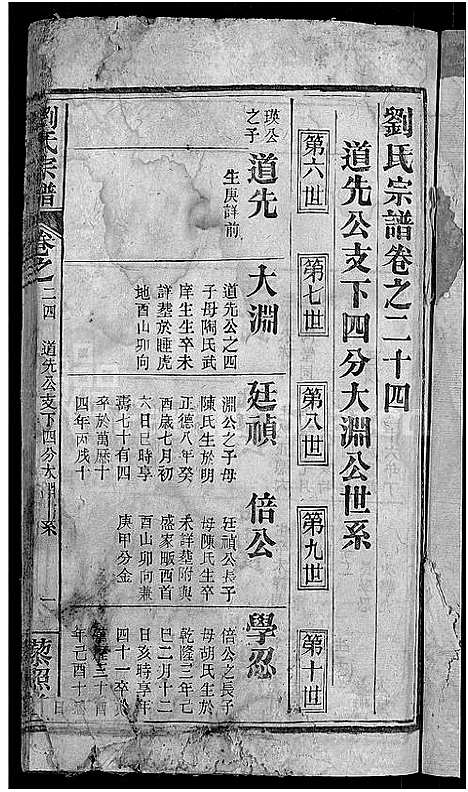 劉氏宗譜卷之二十四
道先公支下四分大淵公世系
第六世
第七世
第八世
第九世
第十世
瑛公
之子
道先
生庚詳前
大淵
道先公之四
子母陶氏武
庠生生卒未
詳塟於睡虎
地酉山卯向
廷禎
淵公之子母
陳氏生於明
正德八年癸
酉歲七月初
六日巳時享
壽七十有四
卒於萬曆十
四年丙戌十
倍公
廷禎公長子
母陳氏生卒
未詳塟附與
盛家畈酉首
酉山卯向兼
庚甲分金
學忍
倍公之長子
母胡氏生於
乾隆三年己
巳二月十二
日亥時享年
四十一卒於
三十酉
年己酉十
劉氏宗譜
卷之二四
道先公支下四分大淵 系
一
藜照